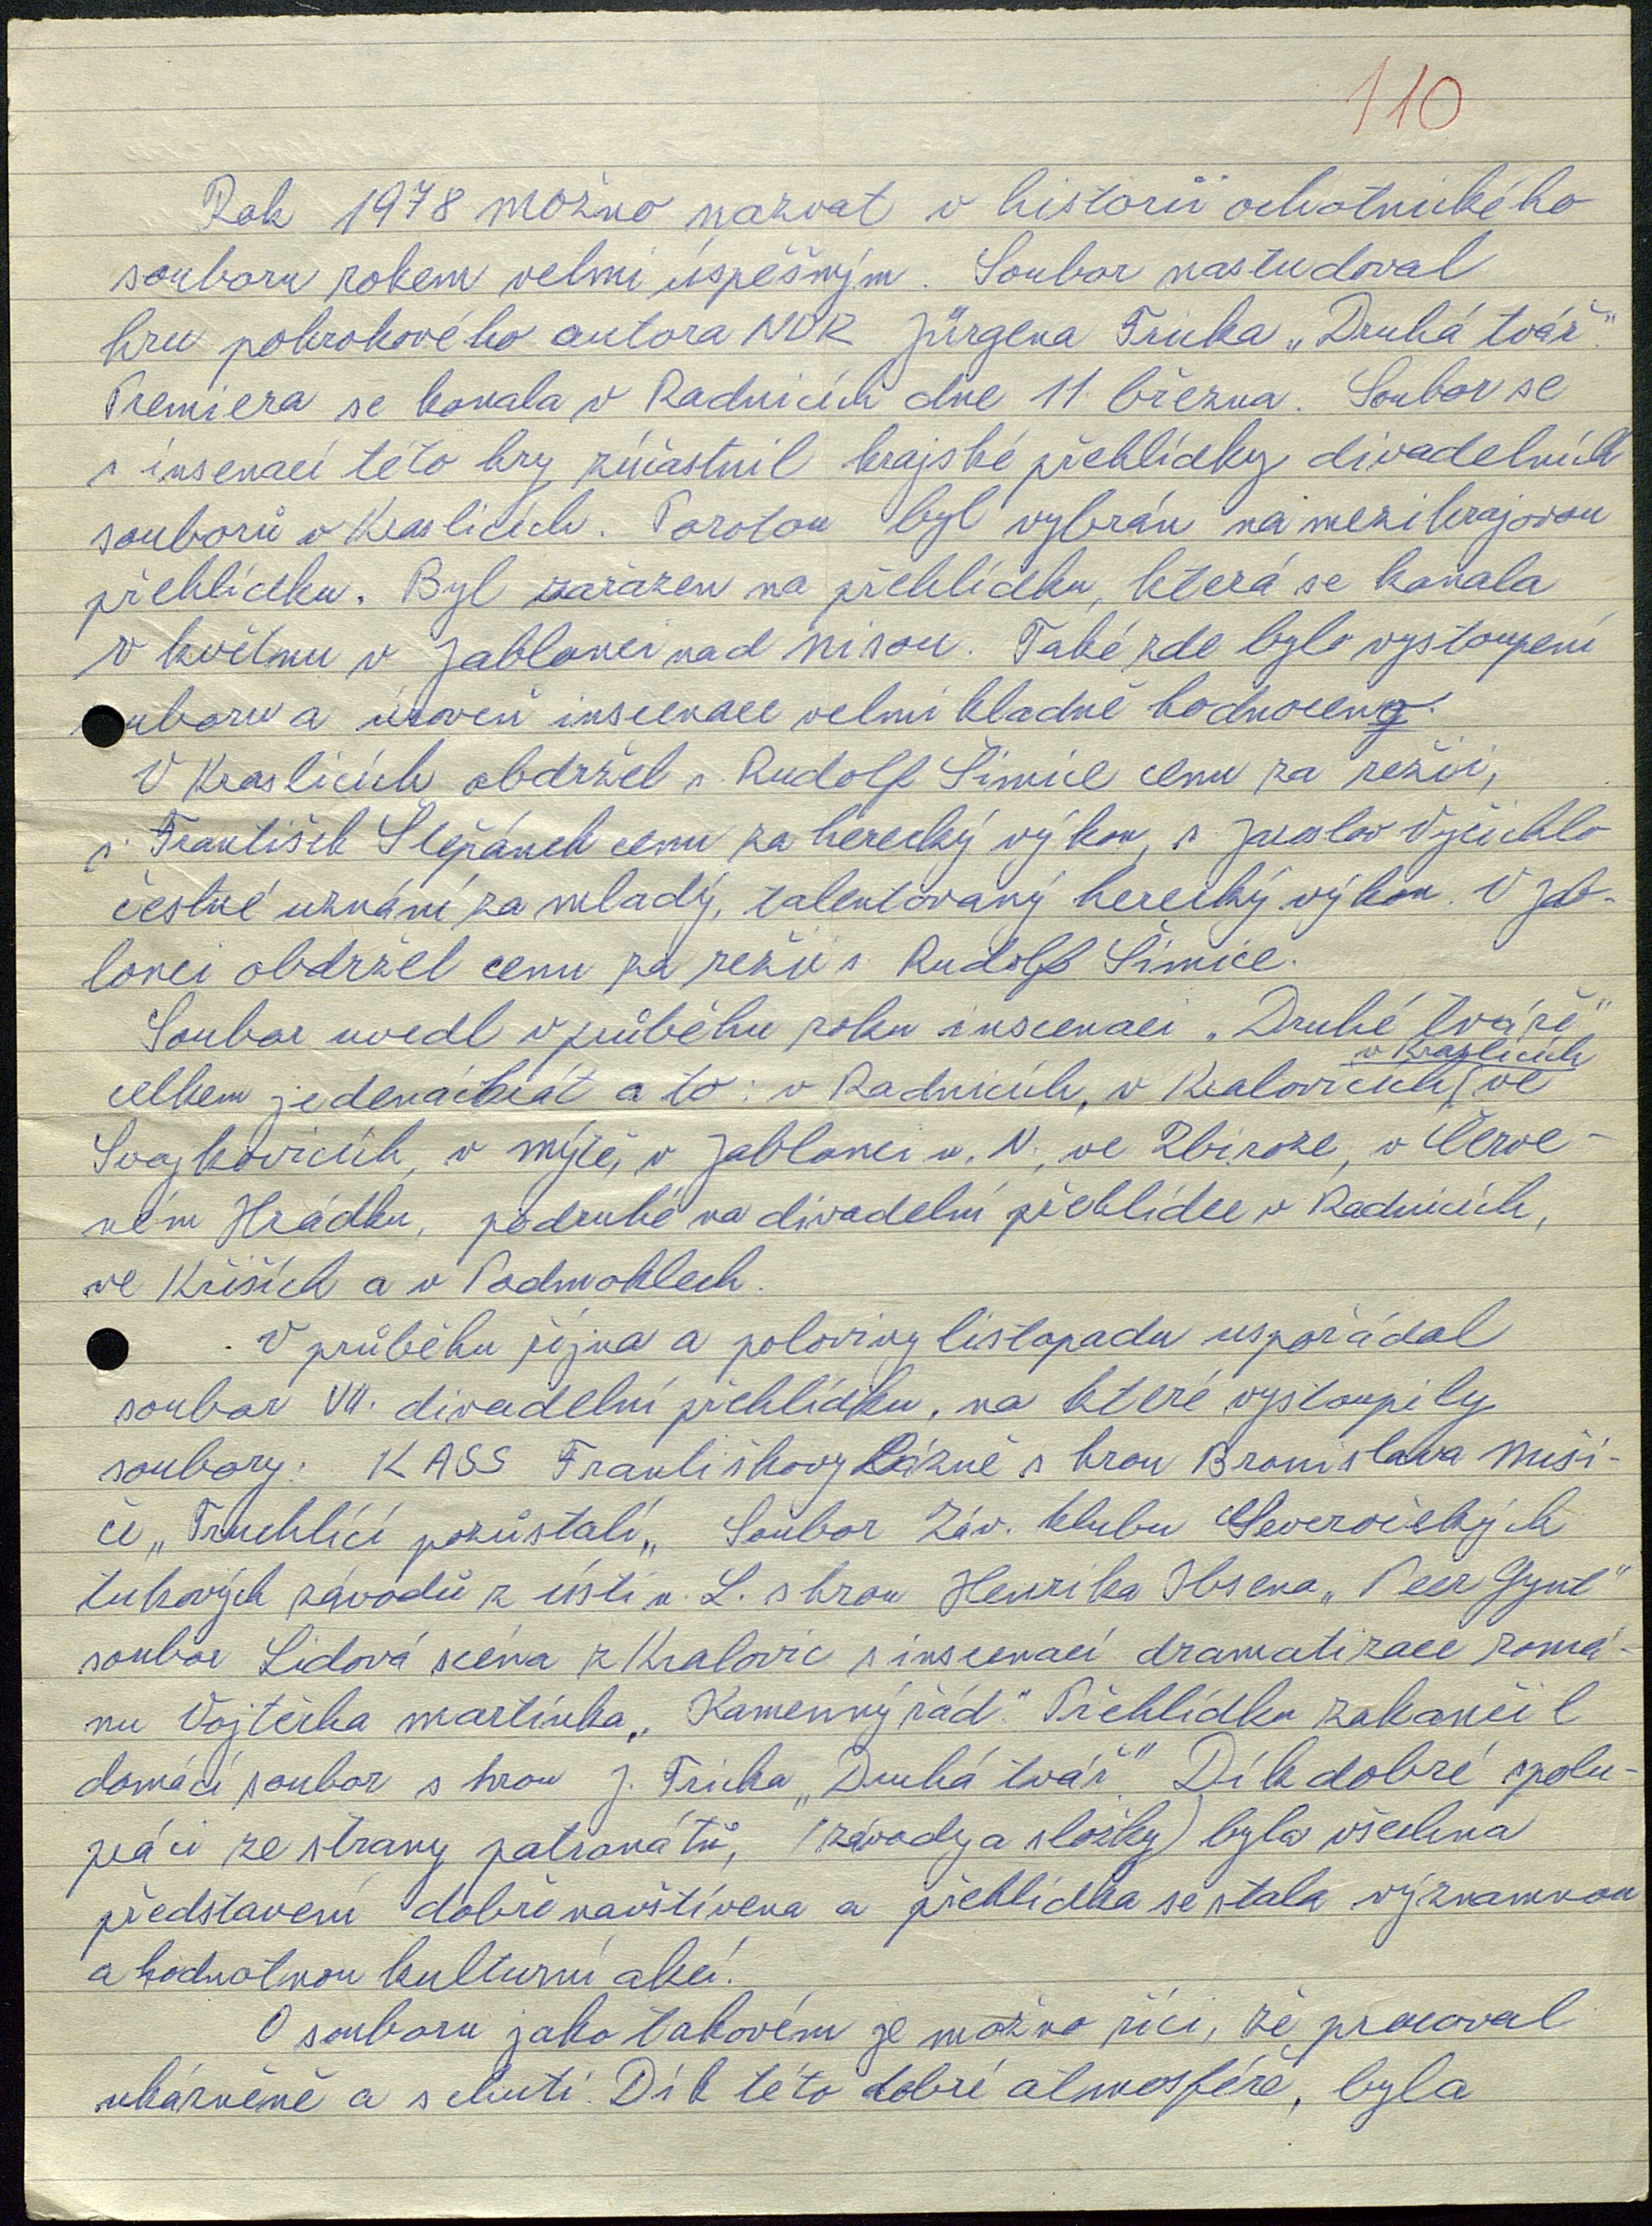 110
Rok 1978 možno nazvat v historii ochotnického
souboru rokem velmi úspěšným. Soubor nastudoval
hru pokrokového autora NDR Jürgena Fricka „Druhá tvář".
Premiera se konala v Radnicích dne 11 března. Soubor se
s insenací této hry zúčastnil krajské přehlídky divadelních
souborů v Kraslicích. Porotou byl vybrán na mezikrajovou
přehlídku. Byl zařazen na přehlídku, která se konala
v květnu v Jablonci nad Nisou. Také zde bylo vystoupení
uboru a úroveň inscenace velmi kladně hodnoceny.
V Kraslicích obdržel s. Rudolf Šimice cenu za režii,
s. František Štěpánek cenu za herecký výkon, s. Jaroslav Vyčichlo
čestné uznání za mladý, talentovaný herecký výkon. V Jab-
lonci obdržel cenu za režii s. Rudolf Šimice.
Soubor uvedl v průběhu roku inscenaci „Druhé tváře"
v Kraslicích
celkem jedenáctkrát a to: v Radnicích, v Kralovicích, ve
Svojkovicích, v Mýtě, v Jablonci n. N., ve Zbiroze, v Červe-
ném Hrádku, podruhé na divadelní přehlídce v Radnicích,
ve Kříších a v Podmoklech.
V průběhu října a poloviny listopadu uspořádal
soubor VII. divadelní přehlídku, na které vystoupily
soubory: KASS Františkovy Lázně s hrou Bronislava Nuši-
če „Truchlící pozůstalí„ Soubor Záv. klubu Severočeských
tukových závodů z Ústí n. L. s hrou Henrika Ibsena „Peer Gynt"
soubor Lidová scéna z Kralovic s inscenací dramatizace romá-
nu Vojtěcha Martínka „Kamenný řád." Přehlídku zakončil
domácí soubor s hrou J. Fricka „Druhá tvář." Dík dobré spolu-
práci ze strany patronátů, (závody a složky) byla všechna
představení dobře navštívena a přehlídka se stala významnou
a hodnotnou kulturní akcí.
O souboru jako takovém je možno říci, že pracoval
ukázněně a s chutí. Dík této dobré atmosféře, byla